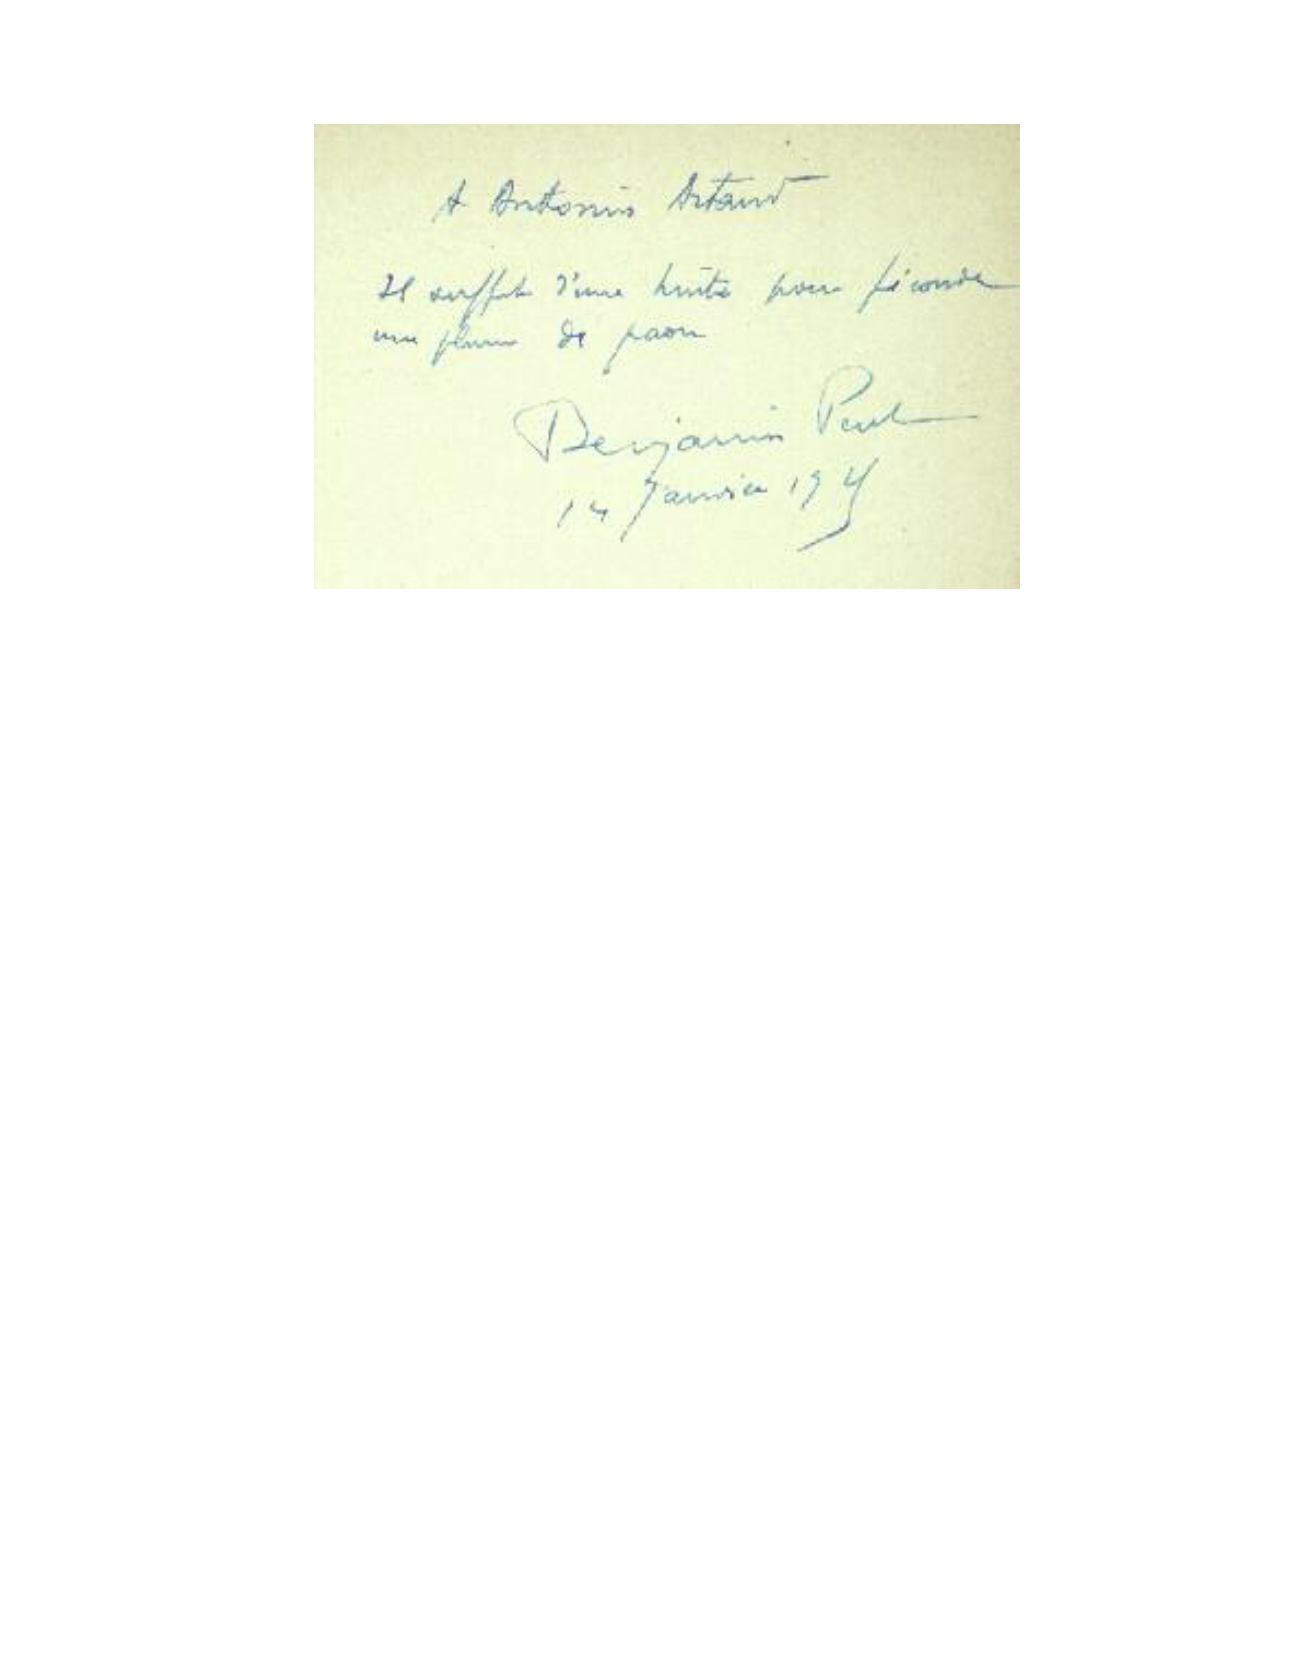 A Antonin Artaud
Il suffit d'une huître pour féconder
une plume de paon
Benjamin Péret
14 Janvier 19